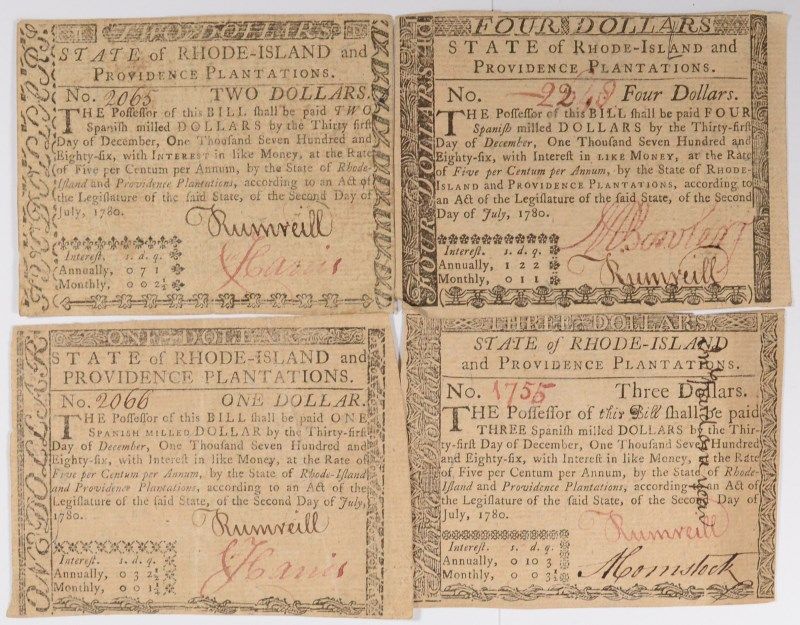 TWO DOLLARS
STATE of RHODE-ISLAND and
PROVIDENCE PLANTATIONS.
No. 2065 TWO DOLLARS.
THE Possessor of this BILL shall be paid TWO
Spanish milled DOLLARS by the Thirty first
Day of December, One Thousand Seven Hundred and
Eighty-six, with INTEREST in like Money, at the Rate
of Five per Centum per Annum, by the State of Rhode-
Island and Providence Plantations, according to an Act of
the Legislature of the said State, of the Second Day of
July, 1780.
Rumreill
Interest. s. d. q.
Annually, 0 7 1
Monthly, 0 0 2½
Harris
FOUR DOLLARS
FOUR DOLLARS
STATE of RHODE-ISLAND and
PROVIDENCE PLANTATIONS.
No. Four Dollars.
THE Possessor of this BILL shall be paid FOUR
Spanish milled DOLLARS by the Thirty-first
Day of December, One Thousand Seven Hundred and
Eighty-six, with Interest in LIKE MONEY, at the Rate
of Five per Centum per Annum, by the State of RHODE-
ISLAND and PROVIDENCE PLANTATIONS, according to
an Act of the Legislature of the said State, of the Second
Day of July, 1780.
Interest. s. d. q.
Annually, 1 2 2
Monthly, 0 1 1
Rumreill
ONE DOLLAR
ONE DOLLAR
STATE of RHODE-ISLAND and
PROVIDENCE PLANTATIONS.
No. 2066 ONE DOLLAR.
THE Possessor of this BILL shall be paid ONE
SPANISH MILLED DOLLAR by the Thirty-first
Day of December, One Thousand Seven Hundred and
Eighty-six, with Interest in like Money, at the Rate of
Five per Centum per Annum, by the State of Rhode-Island
and Providence Plantations, according to an Act of the
Legislature of the said State, of the Second Day of July,
1780.
Rumreill
Interest. s. d. q.
Annually, 0 3 2½
Monthly, 0 0 1¼
Harris
THREE DOLLARS
STATE of RHODE-ISLAND
and PROVIDENCE PLANTATIONS.
No. 1755 Three Dollars.
THE Possessor of this Bill shall be paid
THREE Spanish milled DOLLARS by the Thir-
ty-first Day of December, One Thousand Seven Hundred
and Eighty-six, with Interest in like Money, at the Rate
of Five per Centum per Annum, by the State of Rhode-
Island and Providence Plantations, according to an Act of
the Legislature of the said State, of the Second Day of
July, 1780.
Rumreill
Interest. s. d. q.
Annually, 0 10 3
Monthly, 0 0 3½
Comstock